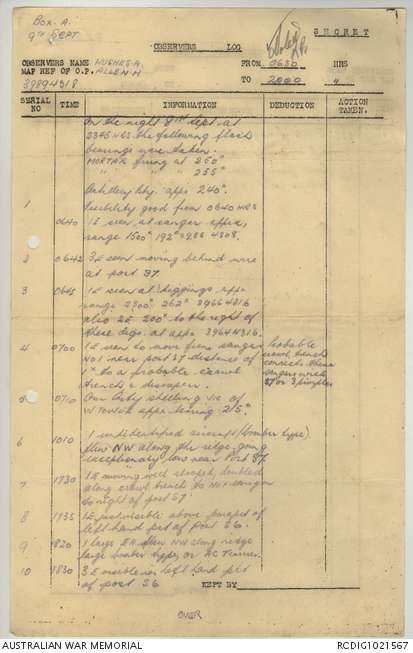 BOX. A.
9TH SEPT
SECRET
OBSERVERS LOG
OBSERVERS NAME HUGHES. A. FROM 0630 HRS
MAP REF OF O.P. ALLEN. H. TO 2000 "
39894318
SERIAL NO TIME INFORMATION DEDUCTION ACTION TAKEN.
On the night 8th Sept. at
2345 HRS the following flash
bearings were taken.
MORTAR firing at 250°
" " " 255°
Artillery Bty. appx 240°.
1 Visibility good from 0640 HRS
0640 1 E seen at sangar appx.
range 1500x 192° 4308.
2 0642 3 E seen moving behind wire
at post S7.
3 0655 1E seen at diggings appx
range 2300x 262° 39664316
also 2E 200x to the right of
these digs. at appx 39644316.
4 0700 1E seen to move from sangar
No1 near post S7 distance of
to a probable crawl
trench & disappear.
Probable
crawl trench
connects these
sangars with
S7
5 0710 Our Arty shelling vic of
W TOWER appx bearing 215°.
6 1010 1 unidentified aircraft (bomber type)
flew NW along the ridge going
exceptionally low near Post S7.
7 1730 1E moving well stooped, doubled
along crawl trench to No1 sangar
to right of post S7.
8 1735 1E just visible above parapet of
left hand pit of Post S6.
9 1820 1 large EA flew NW along ridge
large bomber type, or
10 1830 3E visible in left hand pit
of post S6
KEPT BY
OVER
AUSTRALIAN WAR MEMORIAL
RCDIG1021567